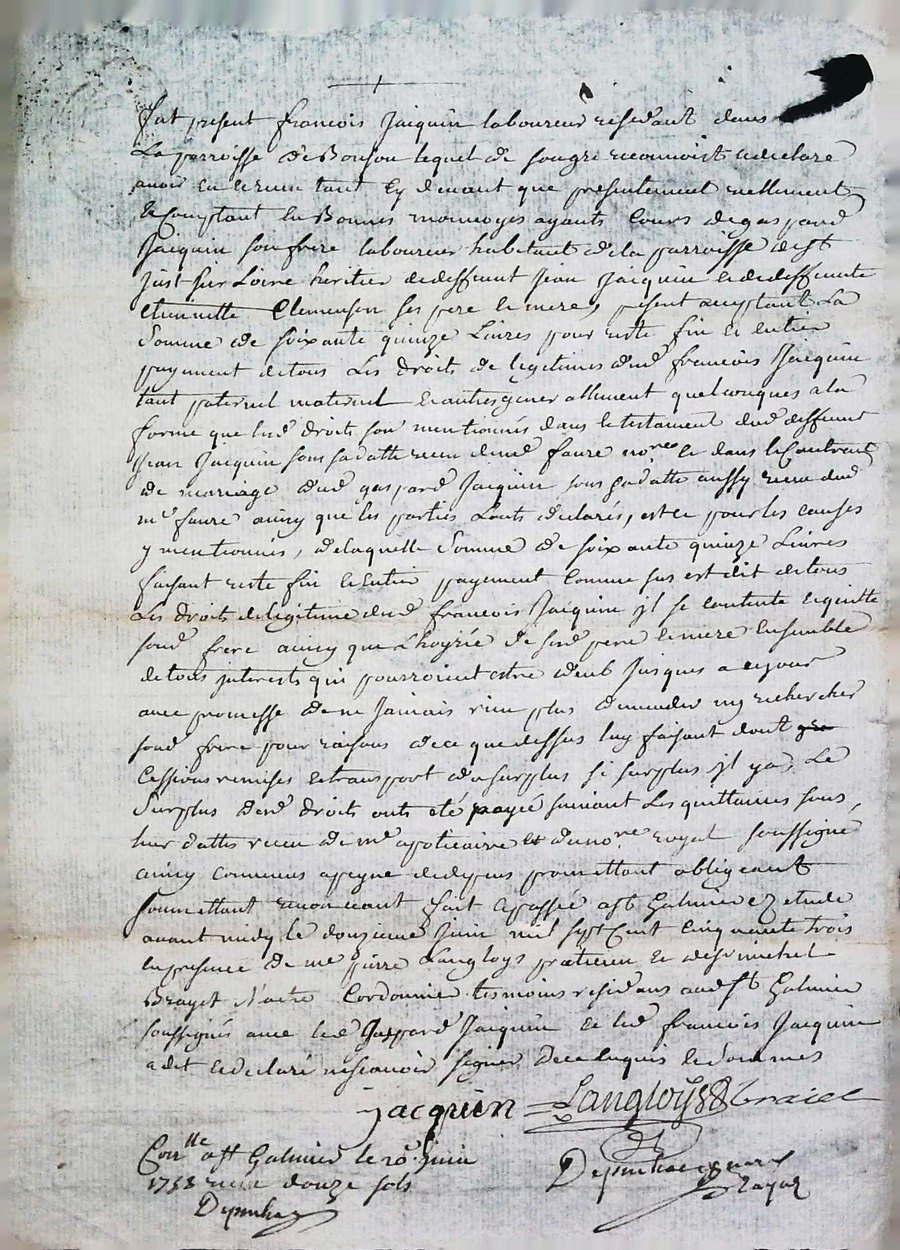 fut present francois Jacquin laboureur residant dans
La parroisse de Bonson lequel de songré reconnoist et declare
avoir eu et receu tant cy devant que presentement reellement
et Comptant En Bonnes monnoyes ayants Cours de gaspard
Jacquin son frere laboureur habitant de la parroisse de st
Just sur Loire heritier de deffunt Jean Jacquin et de deffunte
Etiennette Clemenson ses pere et mere, present acceptant La
Somme de soixante quinze Livres pour reste fin et entier
payement de tous Les droits de legitimes dud francois Jacquin
tant paternel maternel et autres generallement quelconques a la
forme que lesd droits son mentionnés dans le testament dud deffunt
Jean Jacquin sous sa datte receu de me faure nore et dans le Contrat
de mariage dud gaspard Jacquin sous sa datte aussy receu dud
me faure ainsy que les parties L'ont declarés, et ce pour les causes
y mentionnés, de laquelle Somme de soixante quinze Livres
faisant reste fin et Entier payement Comme sus est dit de tous
Les droits de legitime dud francois Jacquin jl se contente et quitte
sond frere ainsy que L'hoyrie de sesd pere et mere Ensemble
de tous jnterests qui pourroient estre deub Jusques a ce jour
avec promesse de ne Jamais rien plus demander ny rechercher
sond frere pour raisons de ce que dessus luy faisant dont
Cessions remises et transport du surplus si surplus jl ya, Le
Surplus desd droits onts eté payé suivant Les quittances sous
leur dattes receu de me apoticaire et du nore royal soussigné
ainsy convenus apeyne de depens promettant obligeant
soumettant renonceant fait et passé a st Galmier etude
avant midy le douzieme Juin mil sept Cent Cinquante trois
en presence de me pierre Langloys praticien et de sr michel
Brayet Me Cordonnier tesmoins residans aud st Galmier
soussignés avec led Gaspard Jacquin et led francois Jacquin
a dit et declaré ne scavoir signer de ce enquis et Sommes
jacquin Langloys
Conlle a st Galmier le 20 Juin
1753 receu douze sols